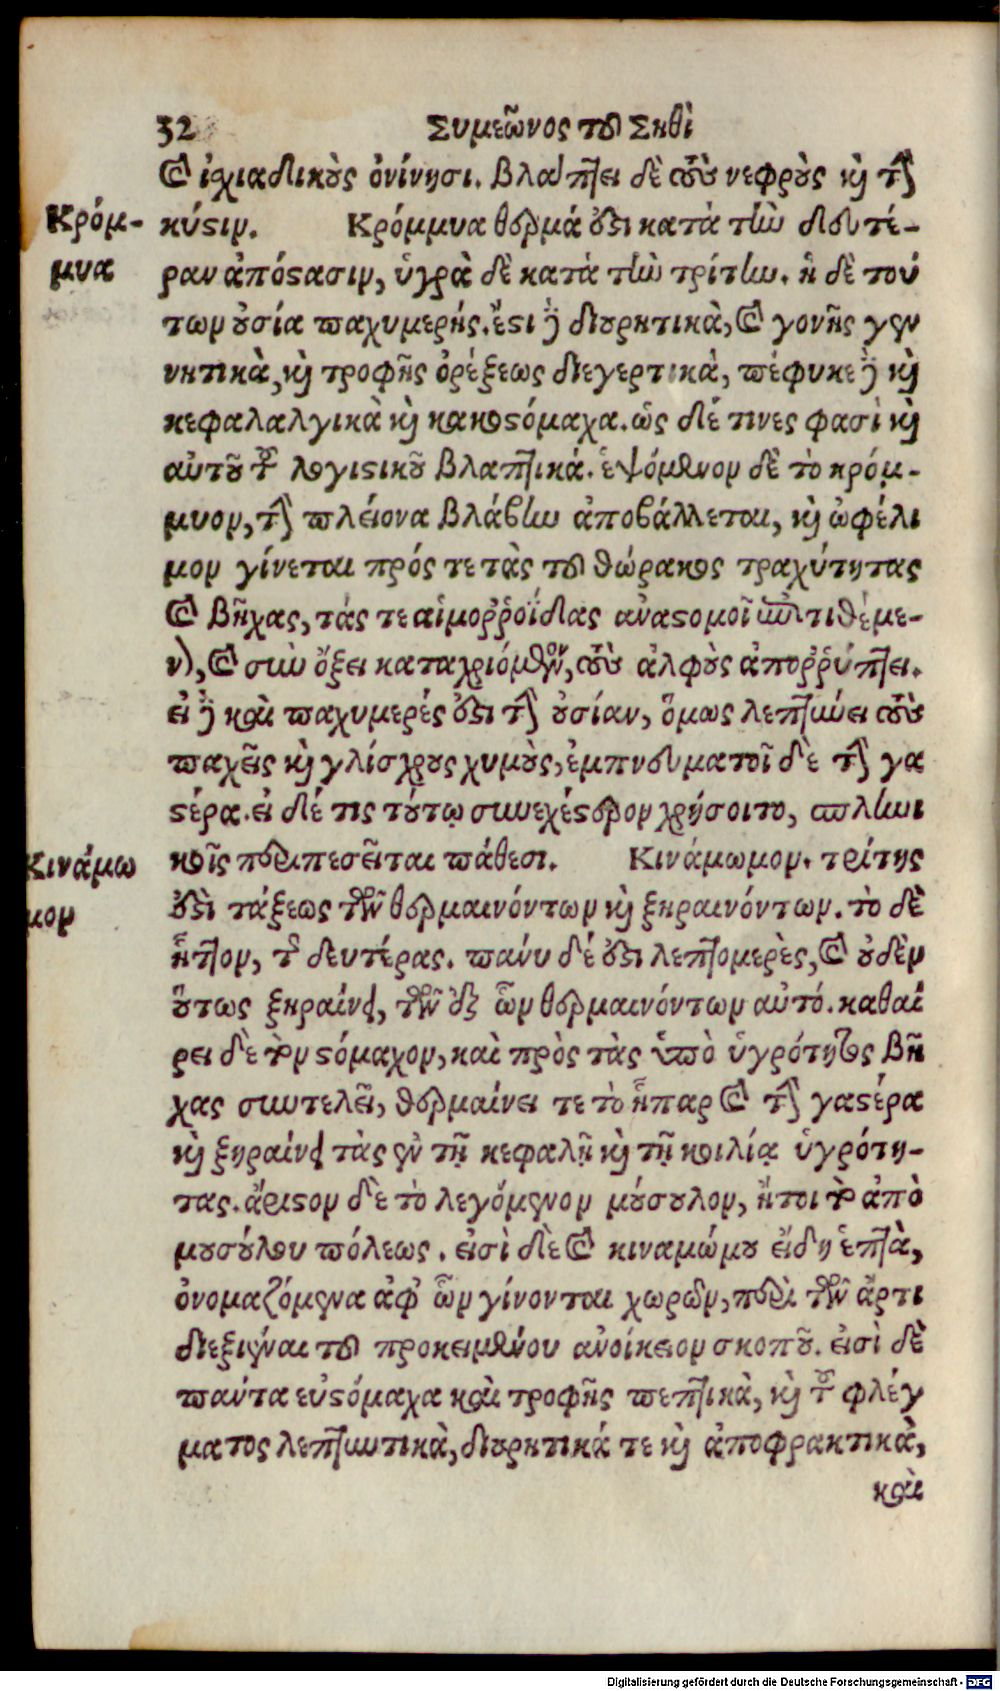 32 Συμεῶνος τοῦ Σηθὶ
καὶ ἰσχιαδικοὺς ὀνίνησι. βλάπτει δὲ τοὺς νεφροὺς καὶ τὴν
Κρόμ- κύστιν. Κρόμμυα θερμά ἐστι κατὰ τὴν δευτέ-
μυα ραν ἀπόστασιν, ὑγρὰ δὲ κατὰ τὴν τρίτην. ἡ δὲ τού
των οὐσία παχυμερής. ἔστι δὲ διουρητικὰ, καὶ γονῆς γεν
νητικὰ, καὶ τροφῆς ὀρέξεως διεγερτικὰ, πέφυκε δὲ καὶ
κεφαλαλγικὰ καὶ κακοστόμαχα. ὡς δέ τινες φασὶ καὶ
αὐτοῦ τοῦ λογιστικοῦ βλαπτικά. ἑψόμενον δὲ τὸ κρόμ-
μυον, τὴν πλείονα βλάβην ἀποβάλλεται, καὶ ὠφέλι
μον γίνεται πρός τε τὰς τοῦ θώρακος τραχύτητας
καὶ βῆχας, τάς τε αἱμοῤῥοΐδας ἀναστομοῖ ἐπιτιθέμε-
νον, καὶ σὺν ὄξει καταχριόμενον, τοὺς ἀλφοὺς ἀποῤῥύπτει.
εἰ δὲ καὶ παχυμερές ἐστι τὴν οὐσίαν, ὅμως λεπτύνει τοὺς
παχεῖς καὶ γλίσχρους χυμοὺς, ἐμπνευματοῖ δὲ τὴν γα
στέρα. εἰ δέ τις τούτῳ συνεχέστερον χρήσοιτο, σπληνι
Κινάμω κοῖς περιπεσεῖται πάθεσι. Κινάμωμον. τρίτης
μον ἐστὶ τάξεως τῶν θερμαινόντων καὶ ξηραινόντων. τὸ δὲ
ἧττον, τῆς δευτέρας. πάνυ δέ ἐστι λεπτομερὲς, καὶ οὐδὲν
οὕτως ξηραίνει, τῶν ἐξ ὧν θερμαινόντων αὐτό. καθαί
ρει δὲ τὸν στόμαχον, καὶ πρὸς τὰς ὑπὸ ὑγρότητος βῆ
χας συντελεῖ, θερμαίνει τε τὸ ἧπαρ καὶ τὴν γαστέρα
καὶ ξηραίνει τὰς ἐν τῇ κεφαλῇ καὶ τῇ κοιλίᾳ ὑγρότη-
τας. ἄριστον δὲ τὸ λεγόμενον μόσουλον, ἤτοι τὸ ἀπὸ
μοσούλου πόλεως. εἰσὶ δὲ καὶ κιναμώμου εἴδη ἑπτὰ,
ὀνομαζόμενα ἀφ᾽ ὧν γίνονται χωρῶν, περὶ τῶν ἄρτι
διεξιέναι τοῦ προκειμένου ἀνοίκειον σκοποῦ. εἰσὶ δὲ
πάντα εὐστόμαχα καὶ τροφῆς πεπτικὰ, καὶ τοῦ φλέγ
ματος λεπτυντικὰ, διουρητικά τε καὶ ἀποφρακτικὰ,
καὶ
Digitalisierung gefördert durch die Deutsche Forschungsgemeinschaft - DFG